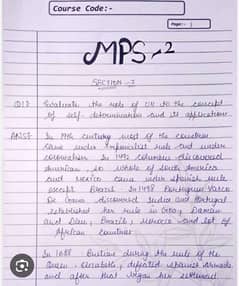 Course Code:-
Page:-
MPS-2
SECTION-I
Q1) Evaluate the role of UN to the concept
of self-determination and its application
ANS:- In 19th century most of the countries
came under imperialist rule and under
colonialism. In 1492 Columbus discovered
American, so whole of South America
and Mexico came under Spanish rule
except Brazil. In 1498 Portuguese Vasco
De Gama discovered India and Portugal
established her rule in Goa, Daman
and Diu, Brazil, and lot of
African countries
In 1588 Britian during the rule of the
Queen Elizabeth, defeated Spanish Armada
and after that began her